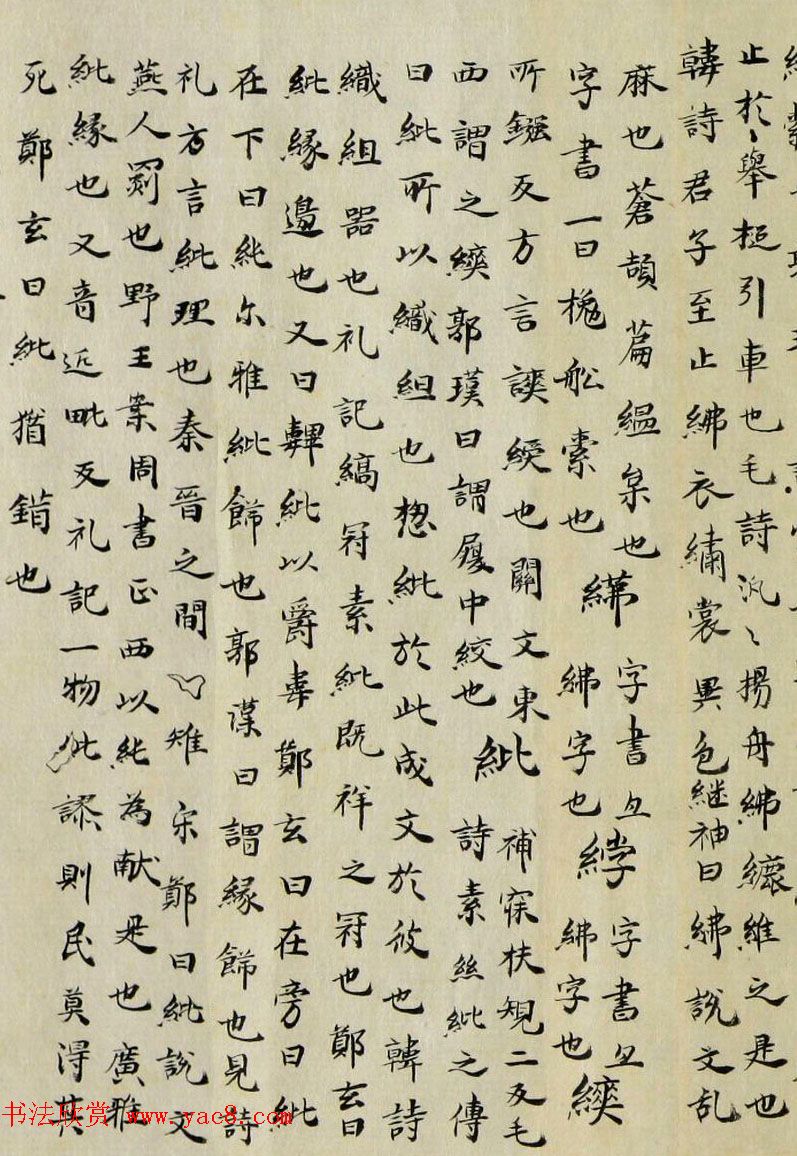 止於〻舉挋引車也毛詩汎〻揚舟紼纚維之是也
韓詩君子至止紼衣繡裳異色継袖曰紼說文乱
麻也蒼頡篇縕枲也 𦆠 字書亦
字書一曰挽舩索也 紼字也 綍 字書亦 紼字也 緛
所鎰反方言謰綬也關文東
西謂之緛郭璞曰謂履中絞也 紕 補寐扶規二反毛 詩素絲紕之傳
曰紕所以織組也揔紕於此成文於彼也韓詩
織組器也礼記縞冠素紕既祥之冠也鄭玄曰
紕緣邊也又曰韠紕以爵韋鄭玄曰在旁曰紕
在下曰純尓雅紕餙也郭璞曰謂緣餙也見詩
礼方言紕理也秦晉之間 雉 宋鄭曰紕說文
燕人罽也野王案周書正西以紕為献是也廣雅
紕緣也又音近毗反礼記一物紕謬則民莫得其
死鄭玄曰紕猶錯也
书法欣赏 www.yac8.com